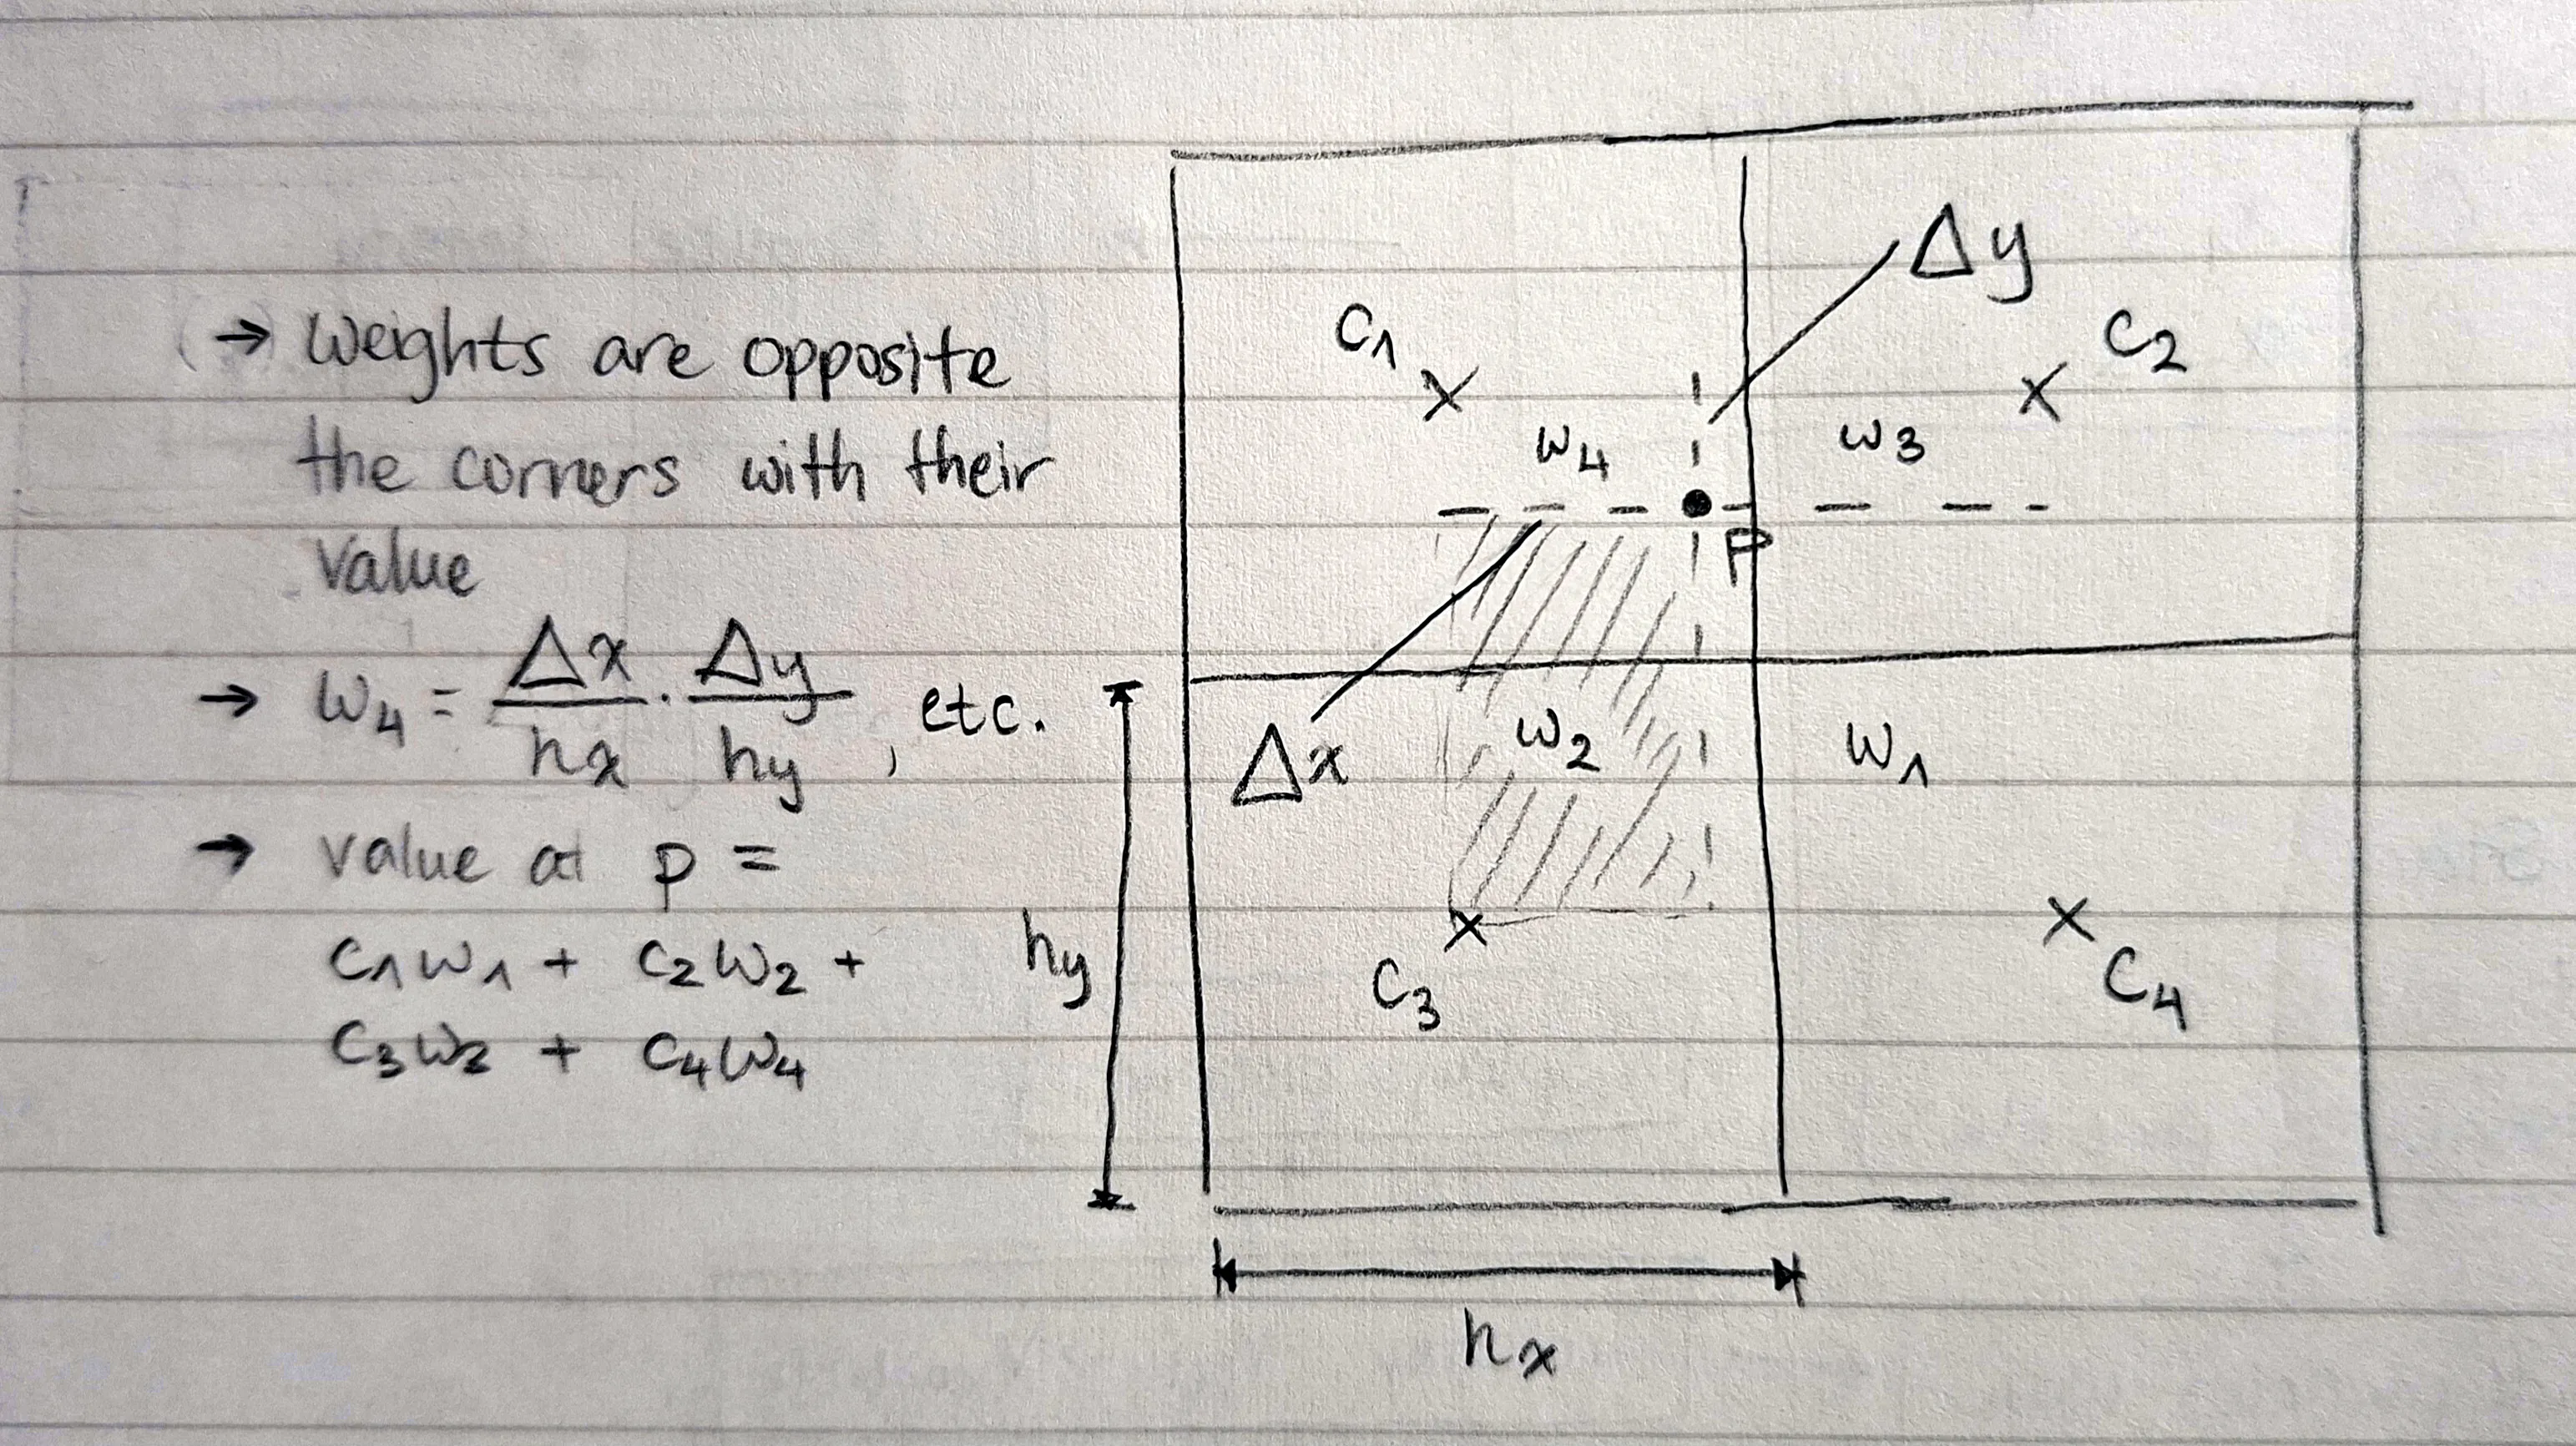 → Weights are opposite
the corners with their
value
→ w₄ = Δx/hx · Δy/hy, etc.
→ value at p =
c₁w₁ + c₂w₂ +
c₃w₃ + c₄w₄
Δy
c₁
c₂
w₄
w₃
P
Δx
w₂
w₁
hy
c₃
c₄
hx